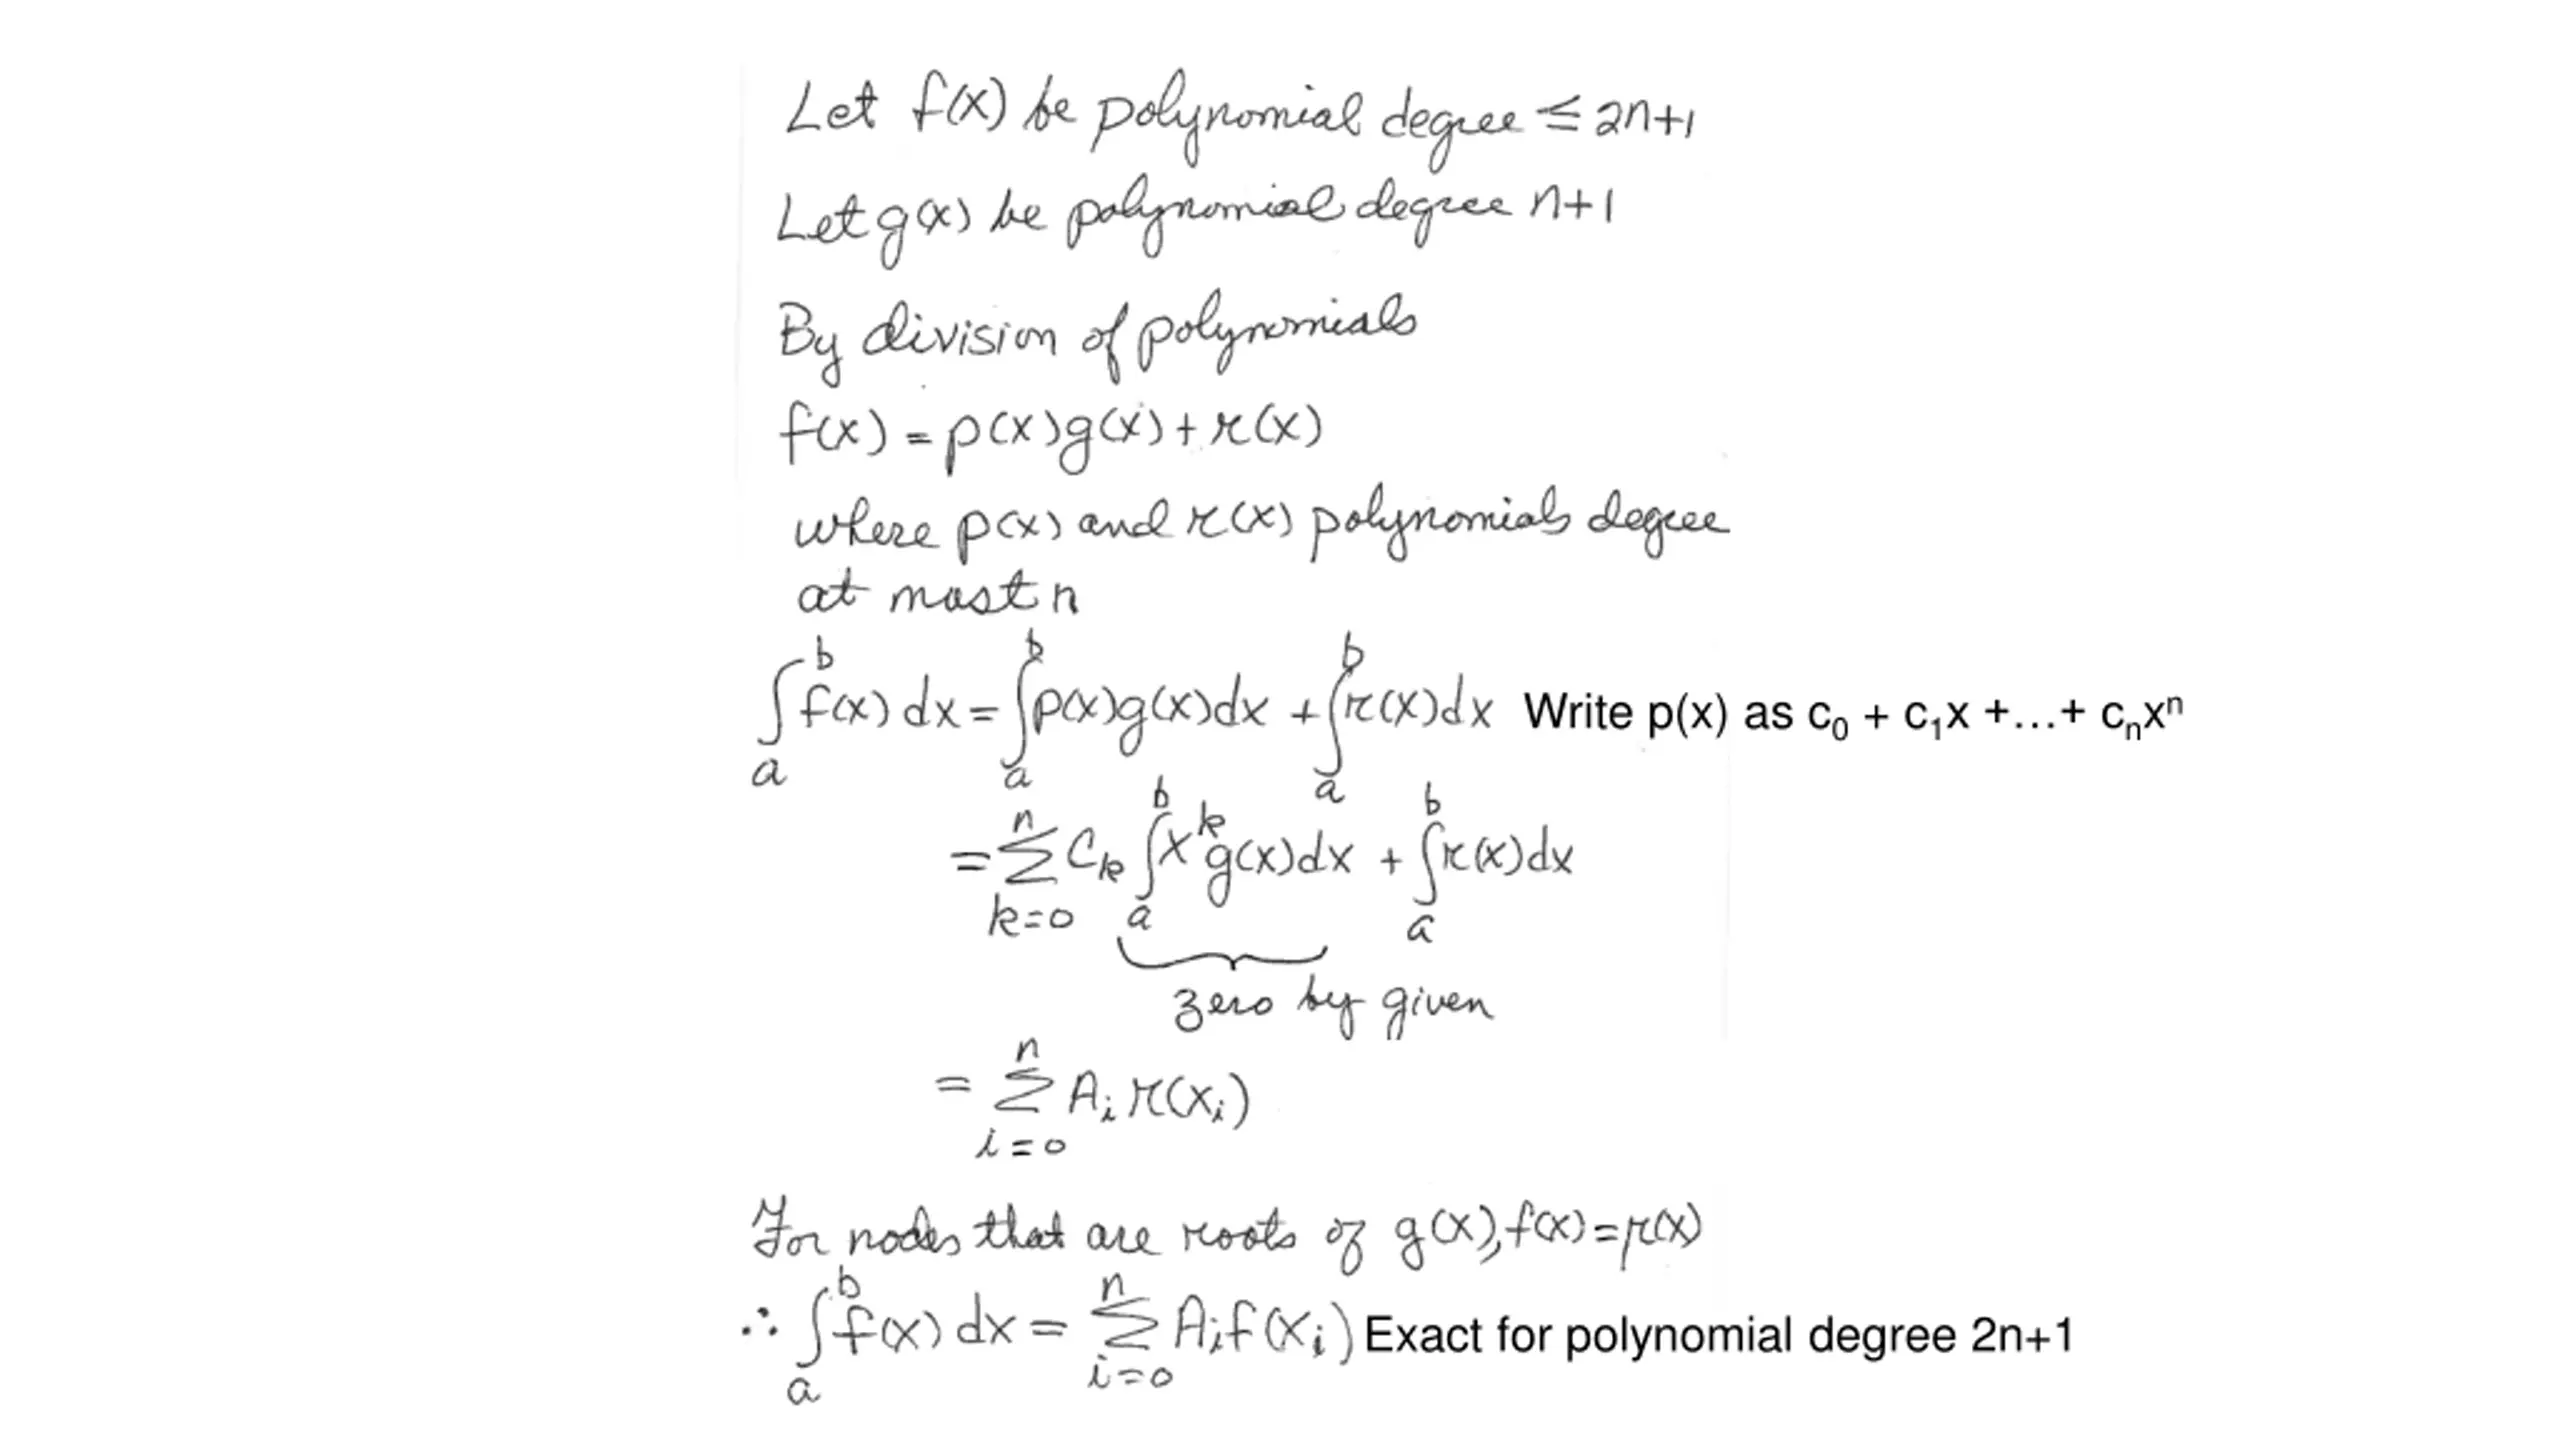 Let f(x) be polynomial degree ≤ 2n+1
Let g(x) be polynomial degree n+1
By division of polynomials
f(x) = p(x)g(x) + r(x)
where p(x) and r(x) polynomials degree
at most n
∫_a^b f(x) dx = ∫_a^b p(x)g(x)dx + ∫_a^b r(x)dx Write p(x) as c₀ + c₁x +…+ cₙxⁿ
= Σ_{k=0}^n C_k ∫_a^b x^k g(x)dx + ∫_a^b r(x)dx
zero by given
= Σ_{i=0}^n A_i r(x_i)
For nodes that are roots of g(x), f(x) = r(x)
∴ ∫_a^b f(x) dx = Σ_{i=0}^n A_i f(x_i) Exact for polynomial degree 2n+1